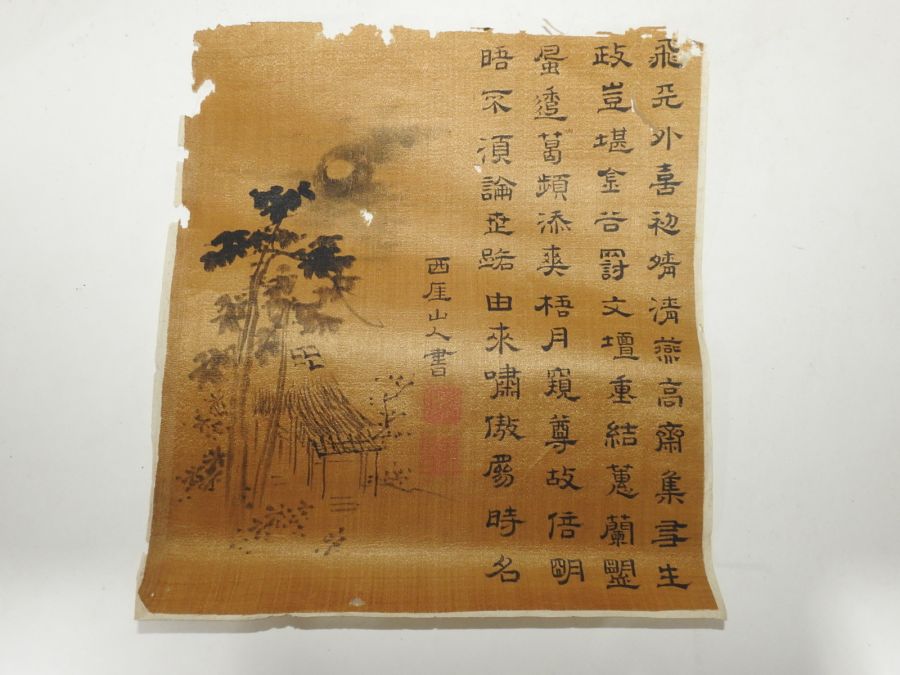 飛天外喜初晴清燕高齋集友生
政豈堪金谷罰文壇重結蕙蘭盟
風透葛頻添爽梧月窺尊故倍明
晤不須論世路由來嘯傲屬時名
西厓山人書